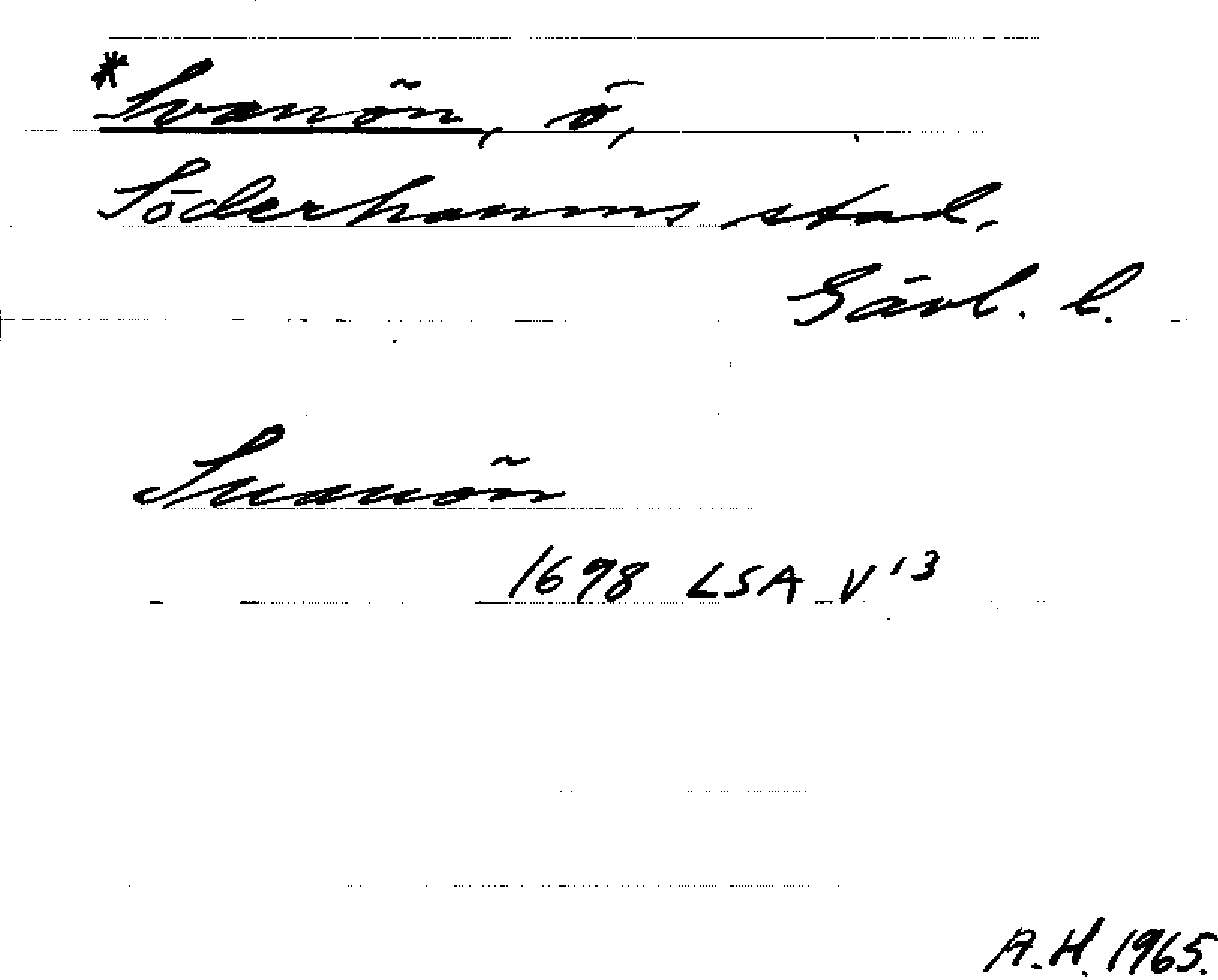 *Svanön, ö,
Söderhamns stad,
Gävl. l.
Svanön
1698 LSA V¹³
A.H. 1965.